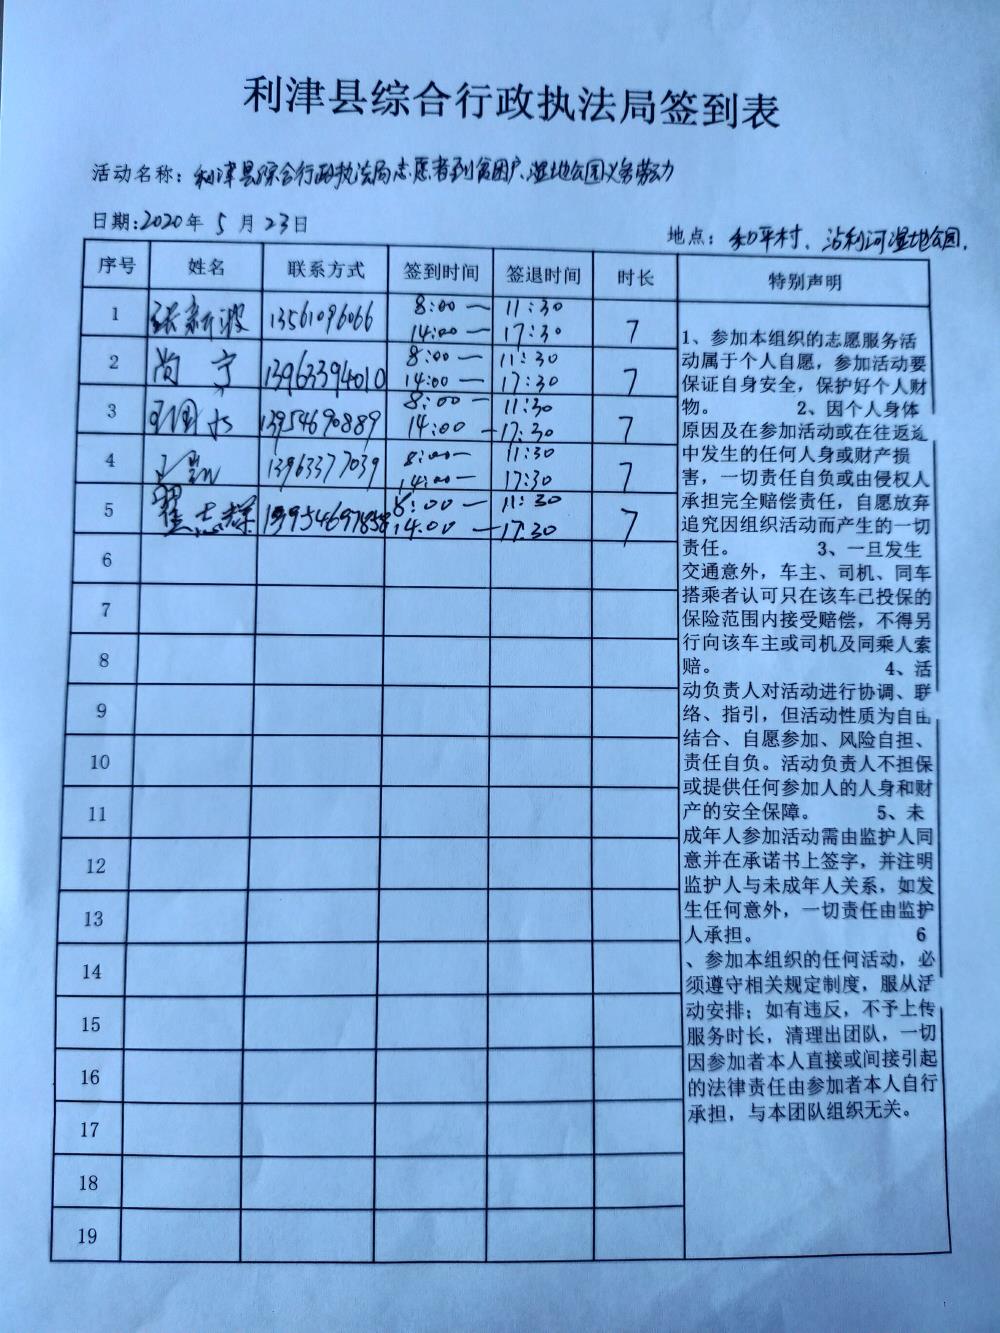 利津县综合行政执法局签到表
活动名称：利津县综合行政执法局志愿者到贫困户、湿地公园义务劳动
日期：2020年 5 月 23日
地点：和平村、沾利河湿地公园.
序号 姓名 联系方式 签到时间 签退时间 时长 特别声明
1 张新波 13561096066 8:00— 11:30 7
14:00— 17:30
2 尚宁 13963394010 8:00— 11:30 7
14:00— 17:30
3 13954690889 8:00— 11:30 7
14:00 —17:30
4 13963377039 8:00— 11:30 7
14:00— 17:30
5 翟志辉 8:00— 11:30 7
14:00 —17:30
6
7
8
9
10
11
12
13
14
15
16
17
18
19
1、参加本组织的志愿服务活
动属于个人自愿，参加活动要
保证自身安全，保护好个人财
物。 2、因个人身体
原因及在参加活动或在往返途
中发生的任何人身或财产损
害，一切责任自负或由侵权人
承担完全赔偿责任，自愿放弃
追究因组织活动而产生的一切
责任。 3、一旦发生
交通意外，车主、司机、同车
搭乘者认可只在该车已投保的
保险范围内接受赔偿，不得另
行向该车主或司机及同乘人索
赔。 4、活
动负责人对活动进行协调、联
络、指引，但活动性质为自由
结合、自愿参加、风险自担、
责任自负。活动负责人不担保
或提供任何参加人的人身和财
产的安全保障。 5、未
成年人参加活动需由监护人同
意并在承诺书上签字，并注明
监护人与未成年人关系，如发
生任何意外，一切责任由监护
人承担。 6
、参加本组织的任何活动，必
须遵守相关规定制度，服从活
动安排；如有违反，不予上传
服务时长，清理出团队，一切
因参加者本人直接或间接引起
的法律责任由参加者本人自行
承担，与本团队组织无关。